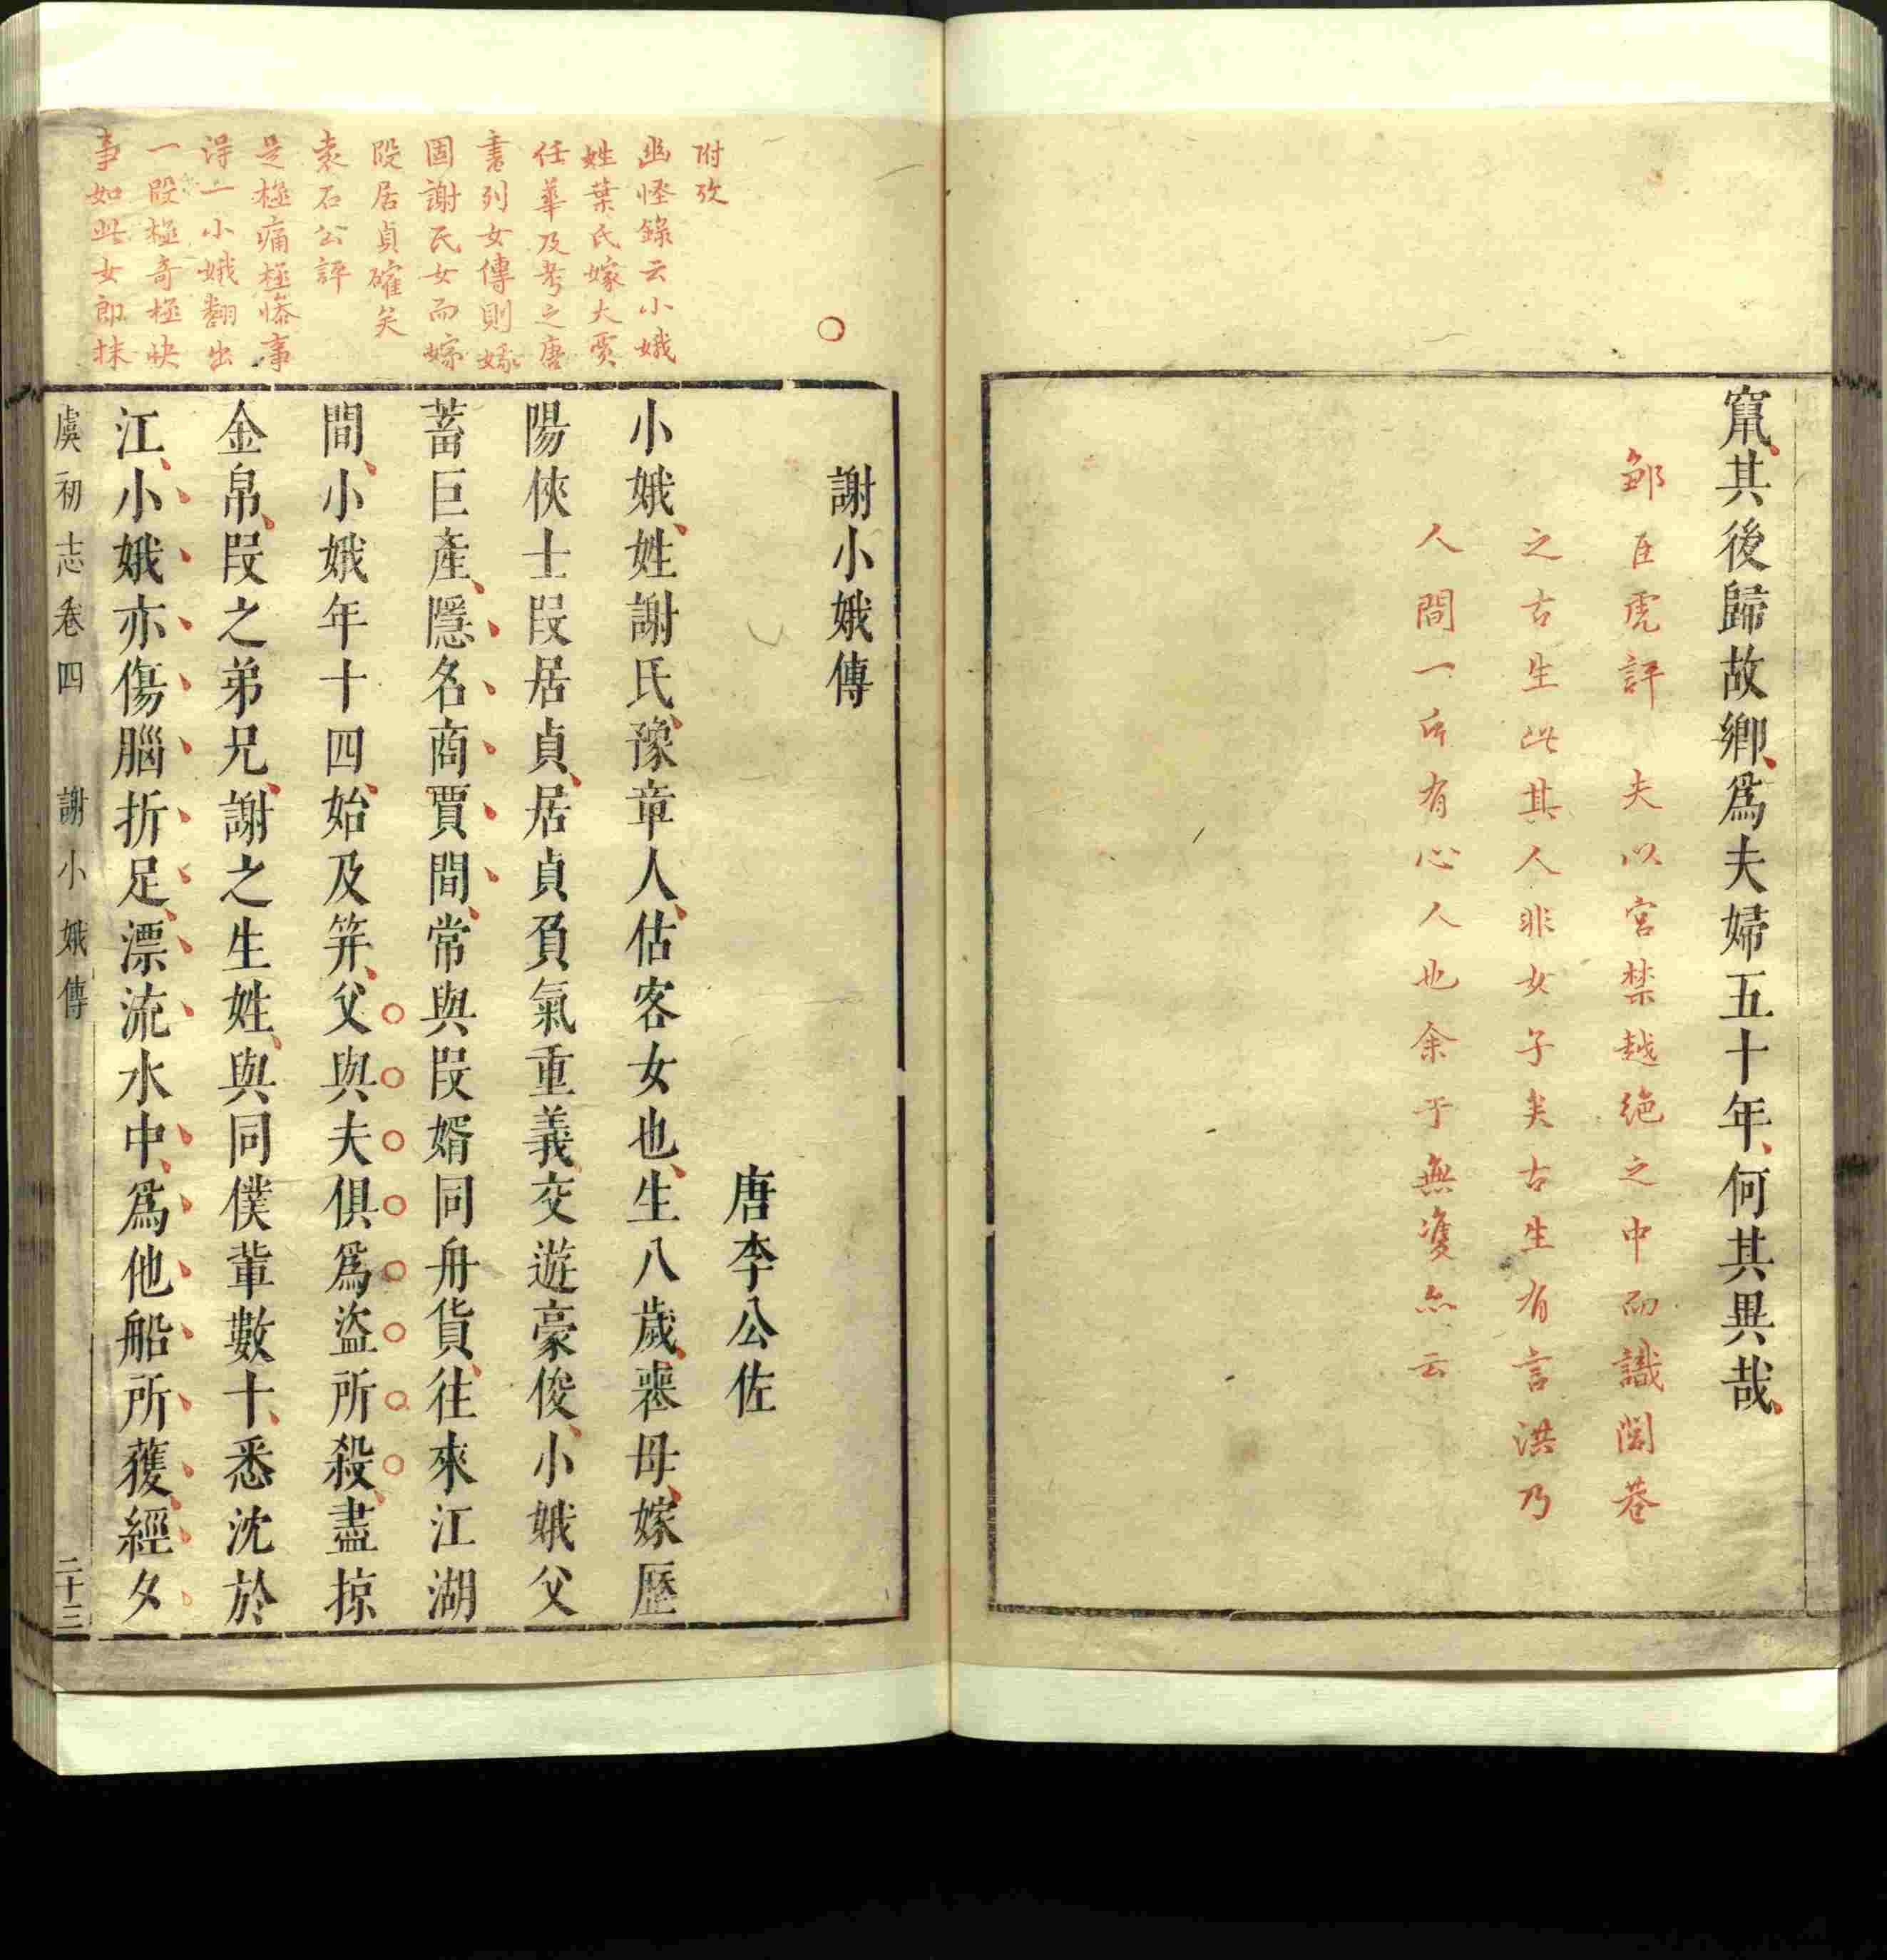 竄其後歸故鄉爲夫婦五十年何其異哉
鄒臣虎評 夫以宮禁越絶之中而識閭巷
之古生此其人非女子矣古生有言洪乃
人間一所有心人也余于無䨇亦云
附攷
幽怪錄云小娥
姓葉氏嫁大賈
任華及考之唐
書列女傳則嫁
固謝氏女而嫁
段居貞確矣
袁石公評
是極痛極慘事
得一小娥翻出
一段極奇極快
事如此女郎抹
謝小娥傳
唐李公佐
小娥姓謝氏豫章人估客女也生八歲喪母嫁歷
陽俠士段居貞居貞負氣重義交遊豪俊小娥父
蓄巨產隱名商賈間常與段婿同舟貨往來江湖
間小娥年十四始及笄父與夫俱爲盜所殺盡掠
金帛段之弟兄謝之生姓與同僕輩數十悉沈於
江小娥亦傷腦折足漂流水中爲他船所獲經夕
虞初志卷四 謝小娥傳 二十三